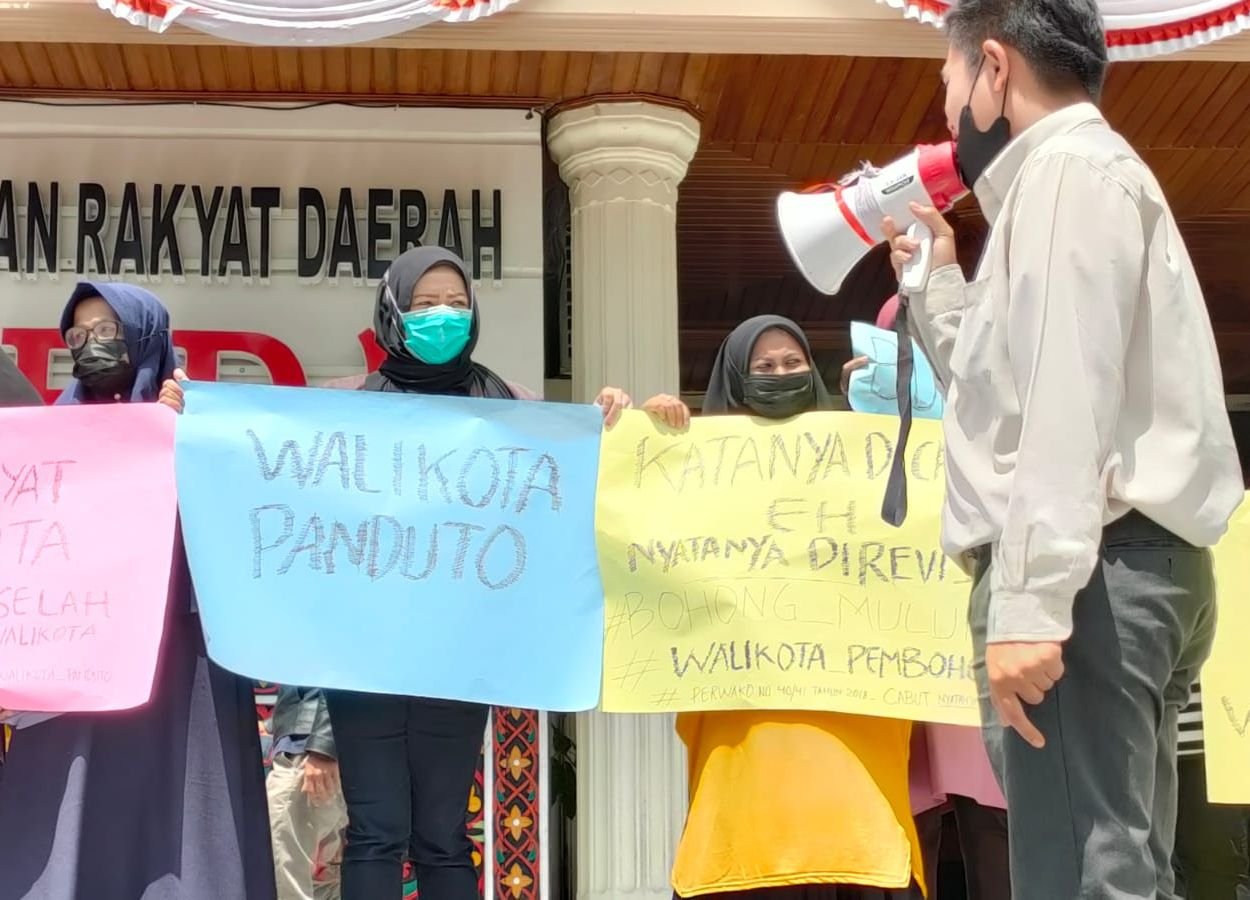 AN RAKYAT DAERAH
YAT
SELAH
WALIKOTA
WALIKOTA_PANDUTO
WALIKOTA
PANDUTO
KATANYA DICA
EH
NYATANYA DIREVIS
#BOHONG_MULU
# WALIKOTA_PEMBOHO
# PERWAKO NO 40/41 TAHUN 2018_ CABUT